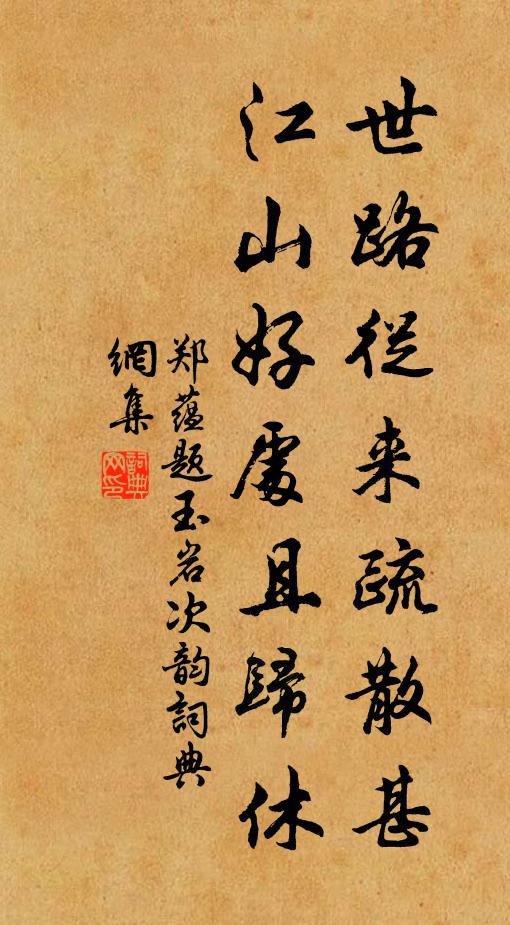 世路從来疏散甚
江山好處且歸休
郑蕴题玉岩次韵詞典
網集
詞典
网印